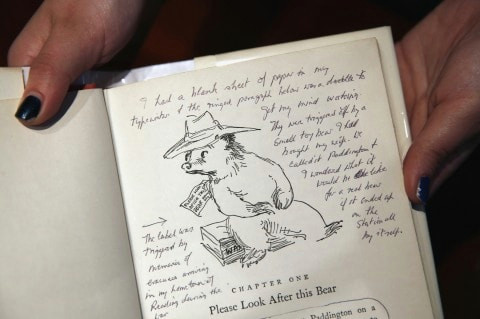 I had a blank sheet of paper in my
typewriter & the ringed paragraph below was a doodle to
get my mind working.
They were triggered off by a
small toy bear I had
bought my wife. We
called it Paddington &
I wondered what it
would be like
for a real bear
if it ended up
on the
station all
by itself.
The label was
triggered by
memories of
evacuees arriving
in my hometown of
Reading during the
war
CHAPTER ONE
Please Look After this Bear
Paddington on a